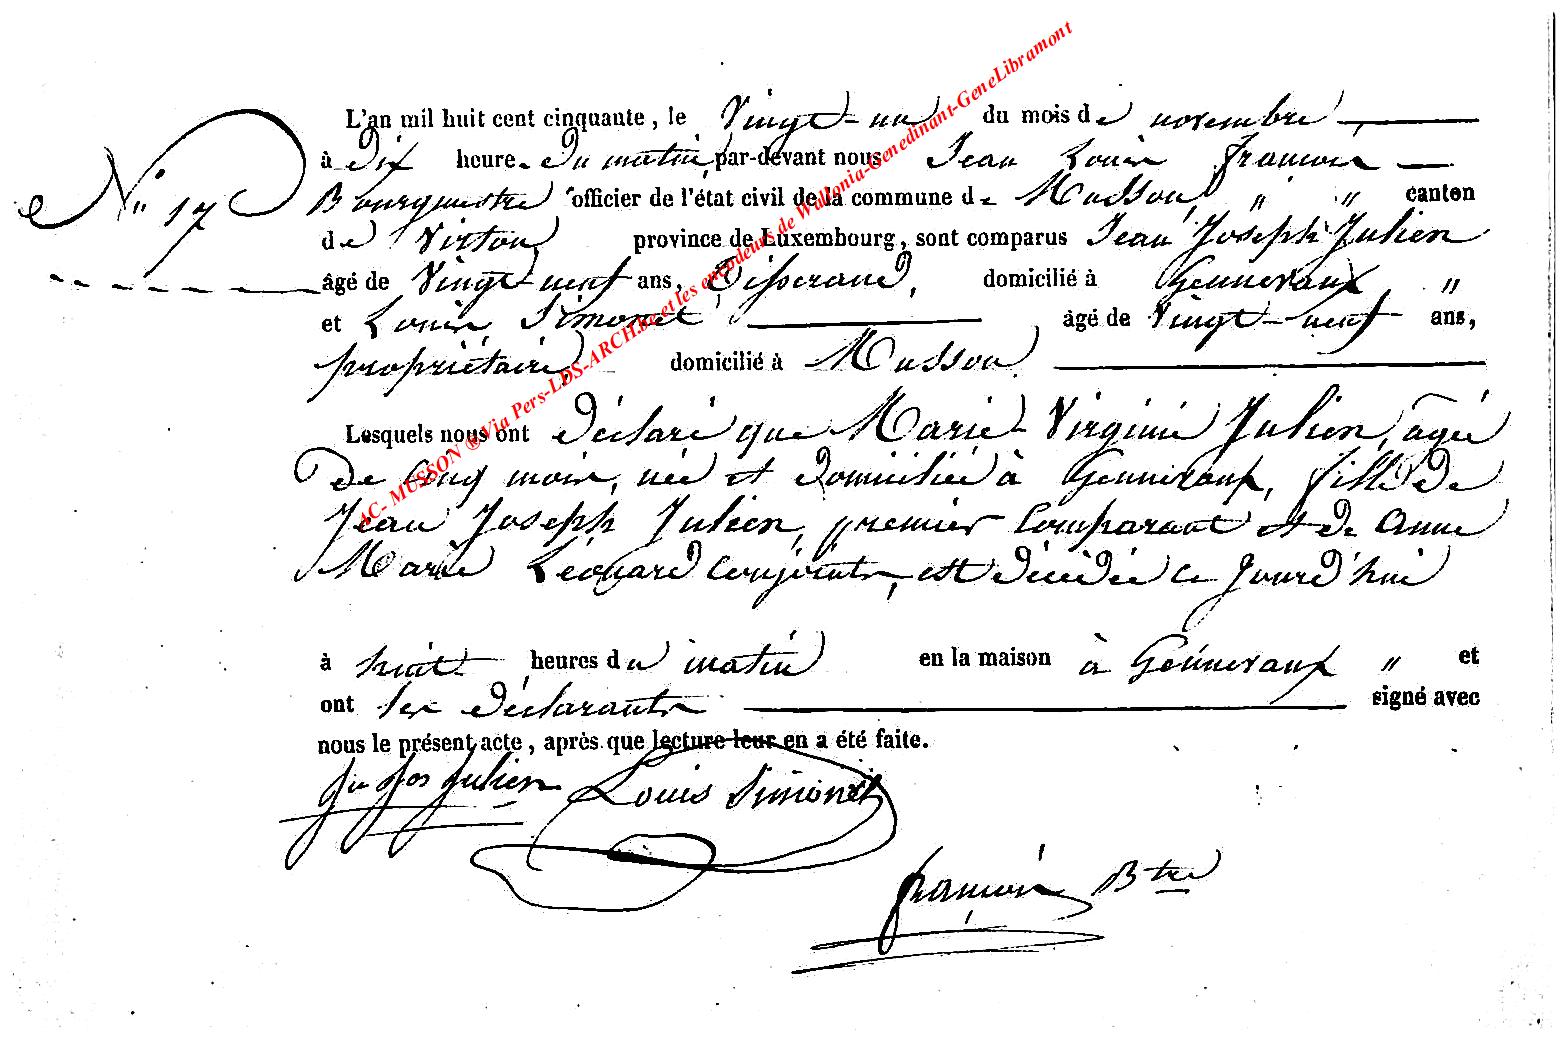 L'an mil huit cent cinquante, le Vingt-un du mois de novembre
N° 17
à Dix heure du matin, par-devant nous Jean Louis François
Bourgmestre officier de l'état civil de la commune de Musson, " " canton
de Virton, province de Luxembourg, sont comparus Jean Joseph Julien
âgé de Vingt-neuf ans, Tisserand, domicilié à Gennevaux, "
et Louis Simonet âgé de Vingt-neuf ans,
propriétaire, domicilié à Musson.
Lesquels nous ont Déclaré que Marie-Virginie Julien, agée
De Cinq mois, née et domiciliée à Gennevaux, fille De
Jean Joseph Julien, premier Comparant et de Anne
Marie Léonard Conjoints, est Décédée ce Jourd'hui
à huit heures du matin en la maison à Gennevaux " et
ont les Déclarants signé avec
nous le présent acte, après que lecture leur en a été faite.
Jn Jos Julien Louis Simonet
françois Btre
AC- MUSSON ®Via Pers-LDS-ARCH.be et les encodeurs de Wallonia-Genedinant-GeneLibramont